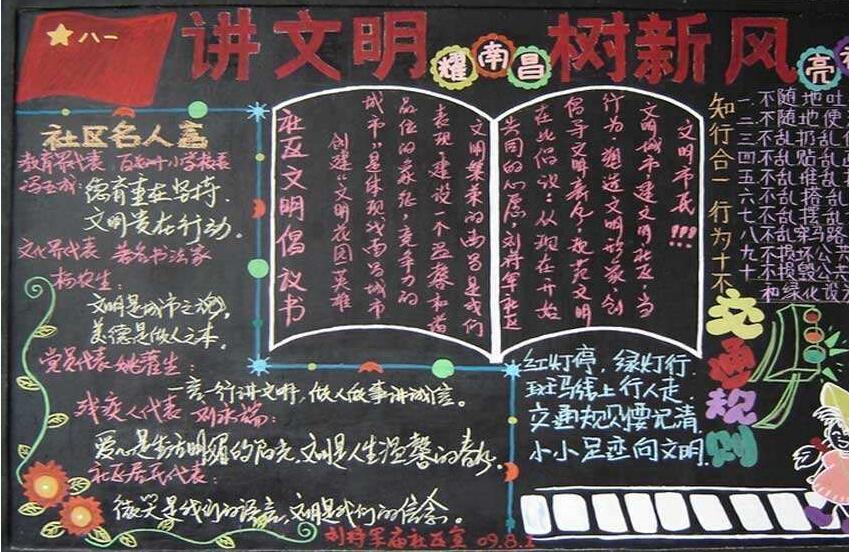 八一
讲文明 耀南昌 树新风 亮
社区名人言
教育界代表
德育重在坚持,
文明贵在行动。
文化界代表 著名书法家
杨农生:
文明是城市之魂,
美德是做人之本。
党员代表 姚
一言一行讲文明,做人做事讲诚信。
残疾人代表
爱心是生活明媚的阳光,文明是人生温馨的春风。
社区居民代表:
微笑是我们的语言,文明是我们的信念。
刘将军庙社区宣 09.8.1
社区文明倡议书
创建“文明花园英雄
城市”是体现我南昌城市
品位的象征,竞争力的
表现,建设一个温馨和谐
文明繁荣的南昌是我们
共同的心愿,刘将军社区
在此倡议:从现在开始
倡导文明新风,
行为,塑造文明形象,创
文明城市,建文明社区,当
文明市民!!!
知行合一 行为十不
一不随地吐
二不随地便
三不乱扔乱
四不乱贴乱
五不乱堆乱
六不乱搭乱
七不乱摆乱
八不乱穿马路
九不损坏公共
十不损毁公共
和绿化设
交通规则
红灯停,绿灯行.
斑马线上行人走.
交通规则要记清
小小足迹向文明.